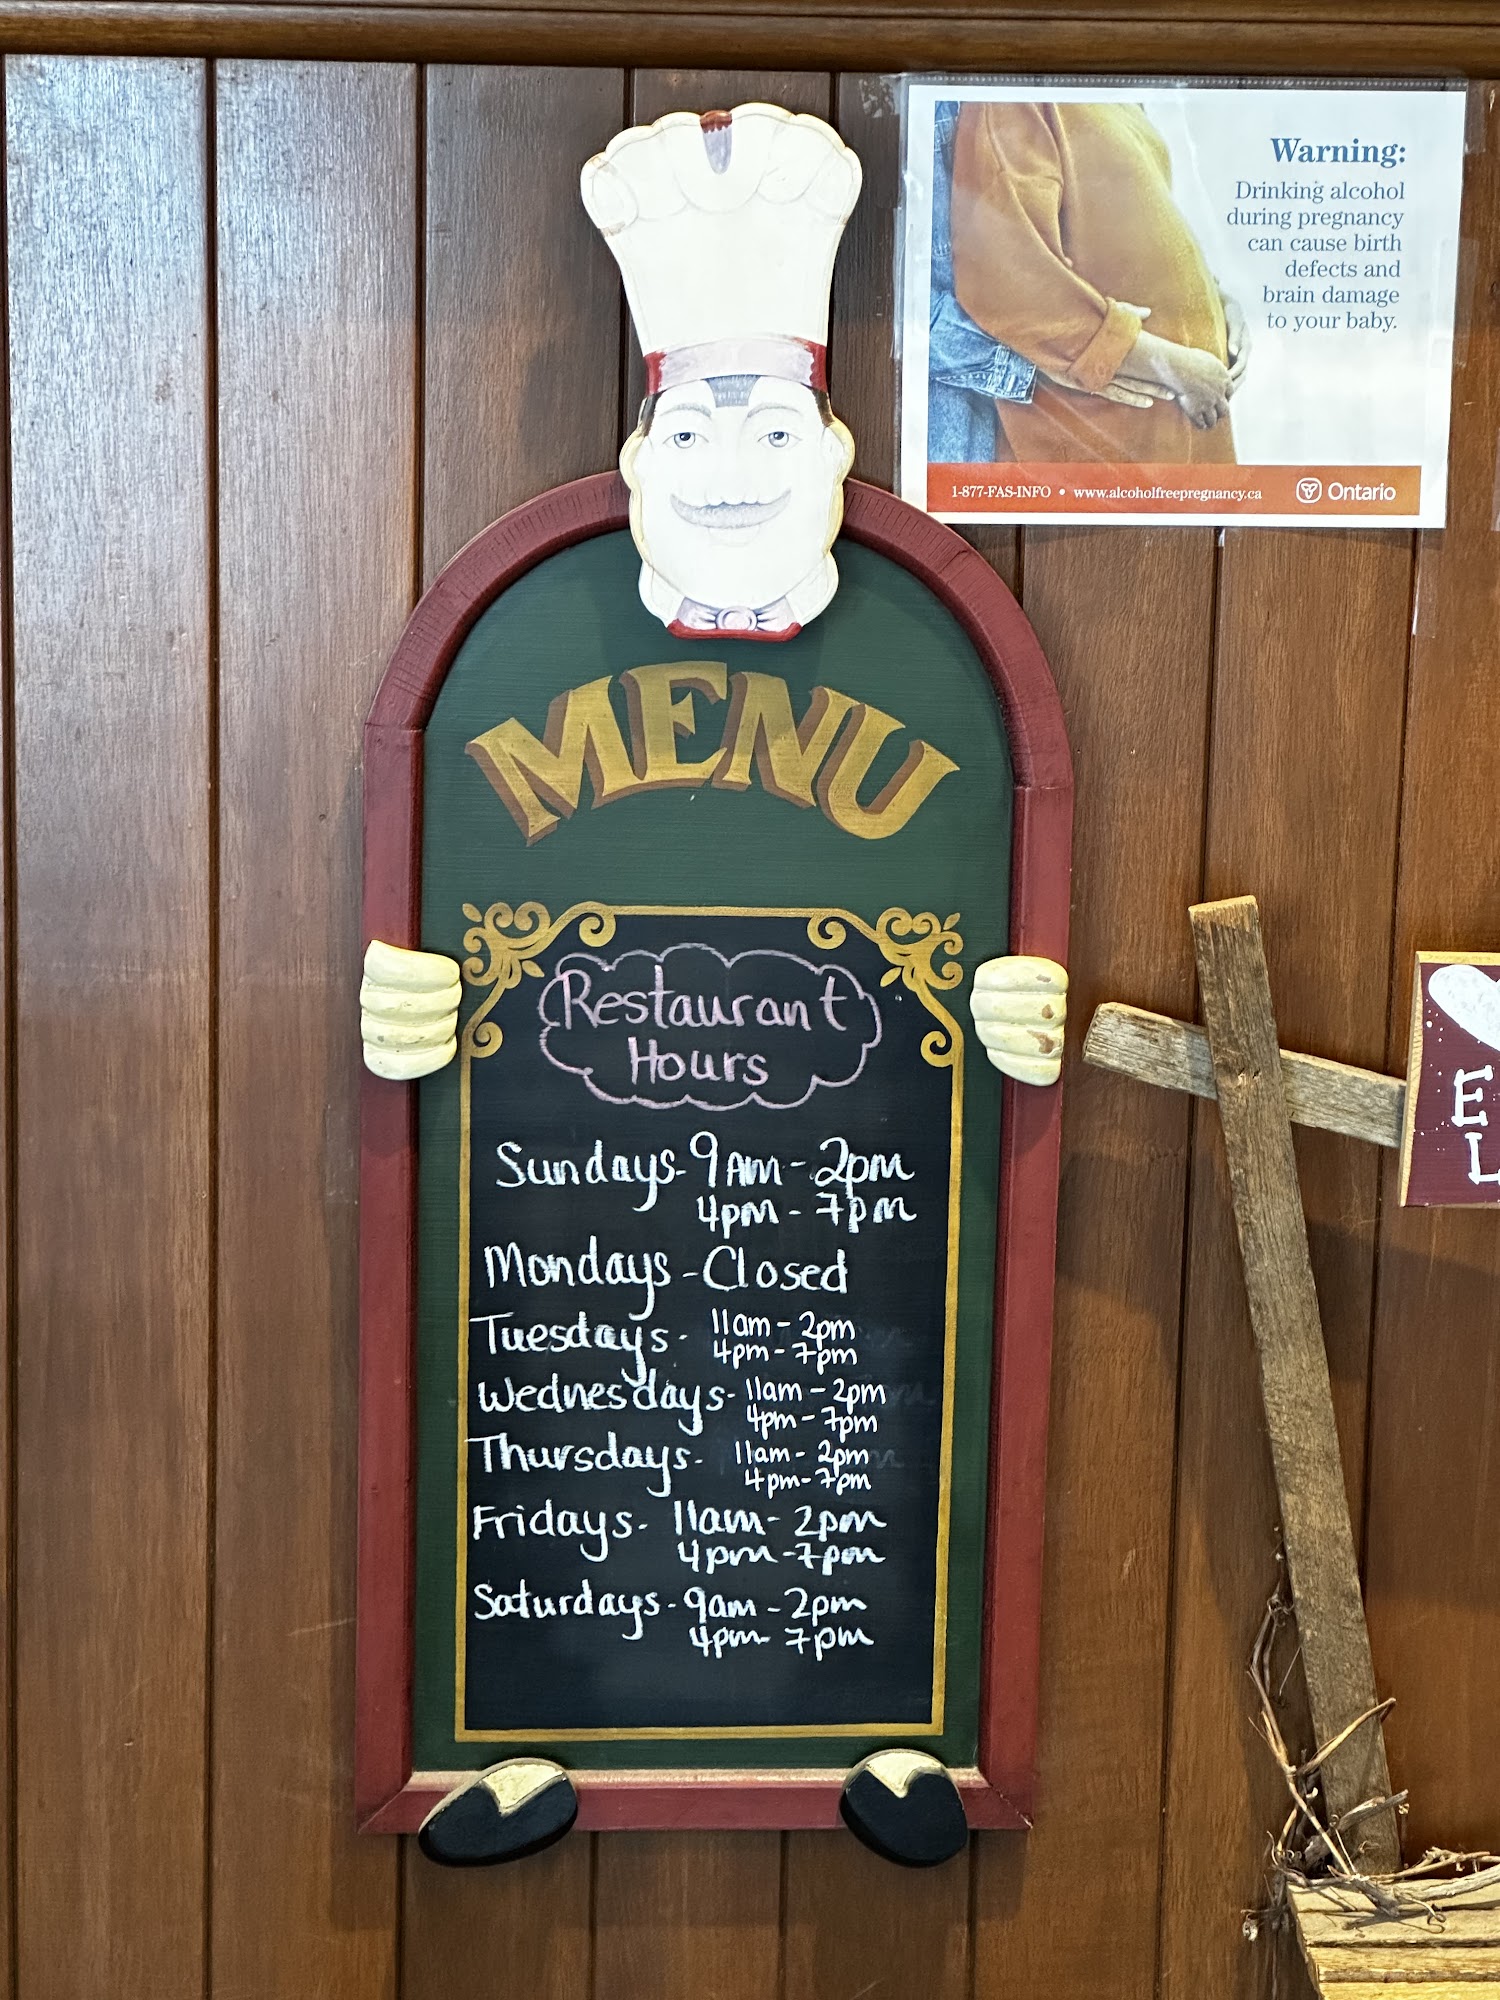 Warning:
Drinking alcohol
during pregnancy
can cause birth
defects and
brain damage
to your baby.
1-877-FAS-INFO • www.alcoholfreepregnancy.ca
Ontario
MENU
Restaurant
Hours
Sundays- 9AM - 2pm
4pm - 7pm
Mondays - Closed
Tuesdays - 11am - 2pm
4pm - 7pm
Wednesdays - 11am - 2pm
4pm - 7pm
Thursdays - 11am - 2pm
4pm - 7pm
Fridays - 11am - 2pm
4pm - 7pm
Saturdays - 9am - 2pm
4pm - 7pm